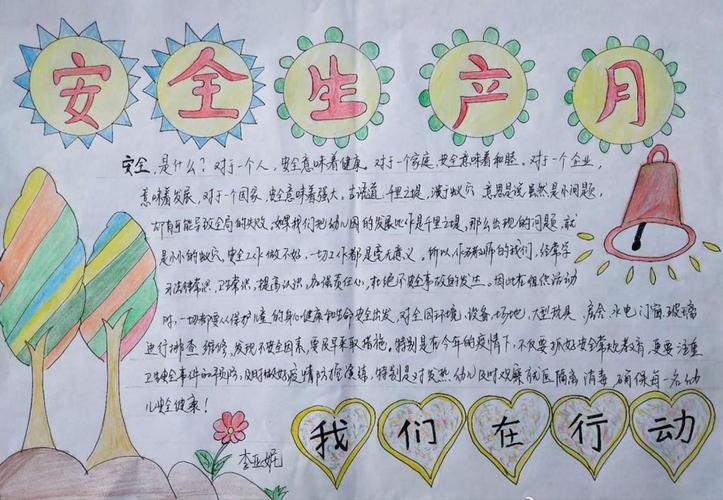 安全生产月
安全,是什么?对于一个人,安全意味着健康。对于一个家庭,安全意味着和睦。对于一个企业,
意味着发展,对于一个国家,安全意味着强大。古语道:千里之堤,溃于蚁穴 意思是说虽然是小问题,
却有可能导致全局的失败,如果我们把幼儿园的发展比作是千里之堤,那么出现的问题,就
是小小的蚁穴,安全工作做不好,一切工作都是毫无意义。所以,作为教师的我们,经常学
习法律常识,卫生常识,提高认识,加强责任心,杜绝不安全事故的发生。因此在组织活动
时,一切都要从保护儿童的身心健康和生命安全出发,对全园环境、设备、场地、大型玩具、房舍、水电、门窗、玻璃
进行排查 维修,发现不安全因素,要及早采取措施。特别是在今年的疫情下,不仅要抓好安全常规教育,更要注重
卫生安全事件的预防,及时做好疫情防控演练,特别是对发热幼儿及时观察就医隔离 消毒 确保每一名幼
儿安全健康!
我们在行动
李亚妮